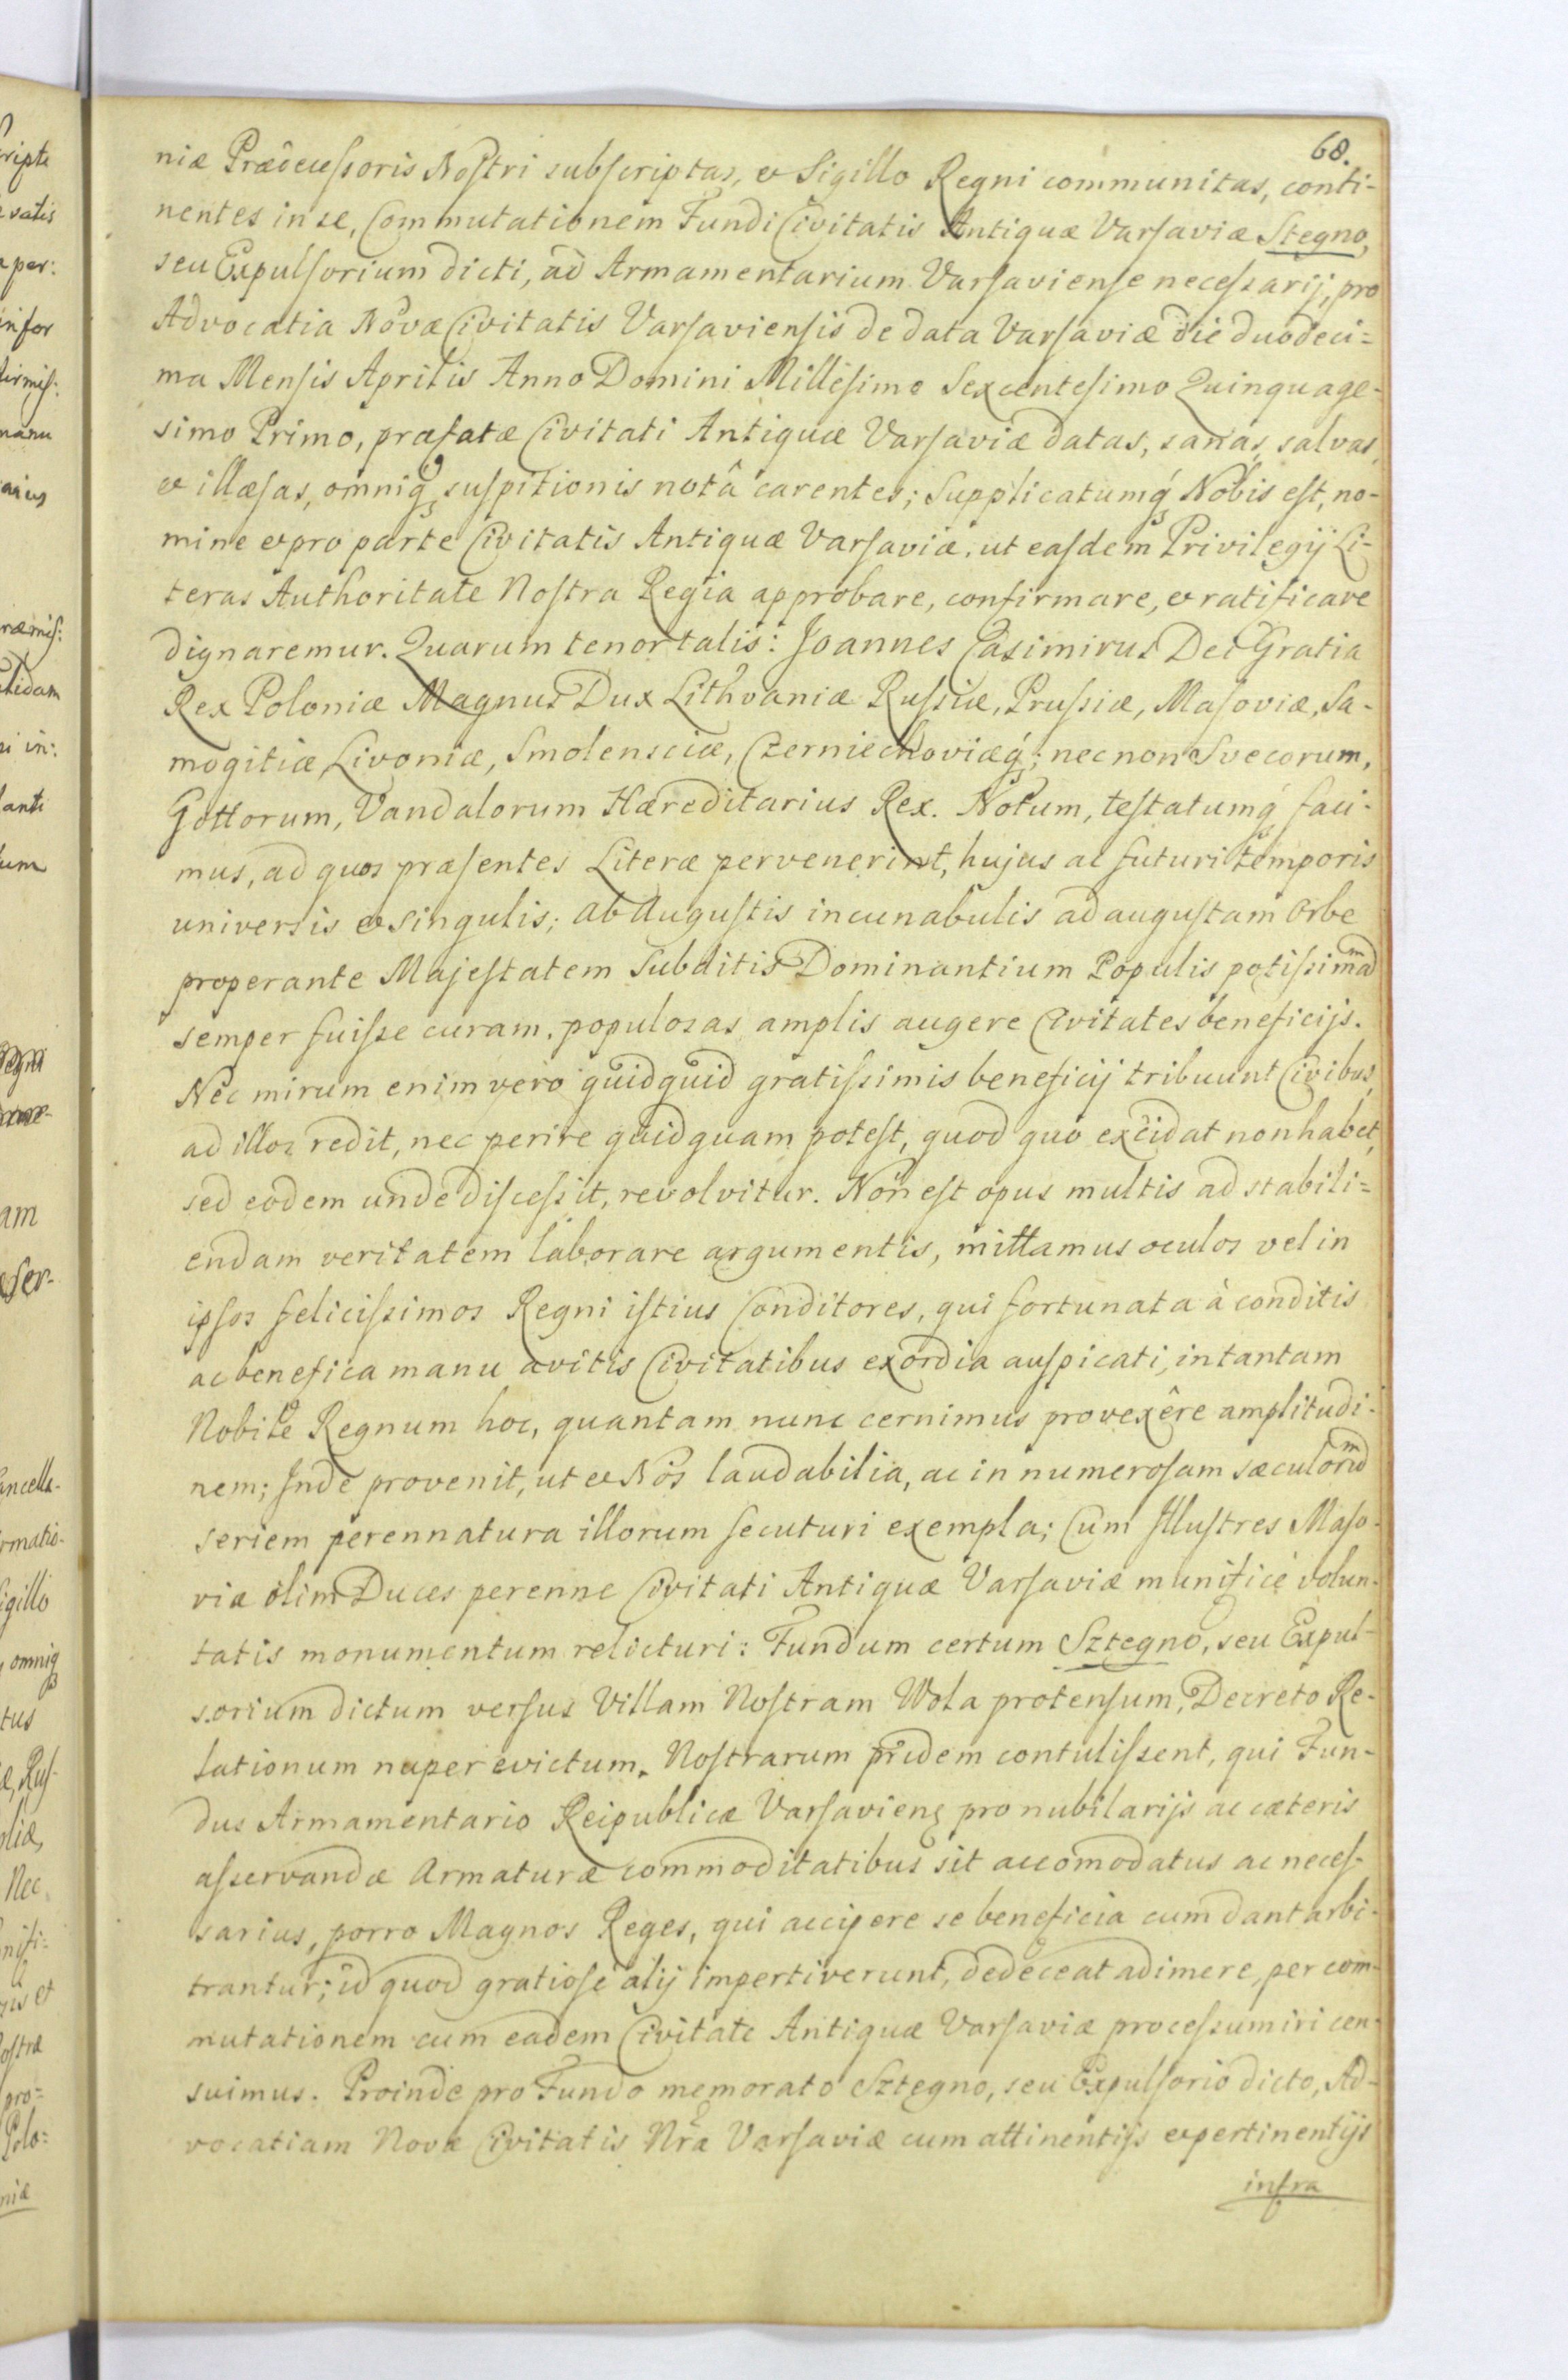 68.
niæ Prædecessoris Nostri subscriptas, et Sigillo Regni communitas, conti-
nentes in se, Commutationem Fundi Civitatis Antiquæ Varsaviæ Stegno,
seu Expulsorium dicti, ad Armamentarium Varsaviense necessarij, pro
Advocatia Novæ Civitatis Varsaviensis de data Varsaviæ die duodeci=
ma Mensis Aprilis Anno Domini Millesimo Sexcentesimo Quinquage-
simo Primo, præfatæ Civitati Antiquæ Varsaviæ datas, sanas, salvas,
et illæsas, omniq, suspitionis notâ carentes; Supplicatumq́ Nobis est, no-
mine et pro parte Civitatis Antiquæ Varsaviæ, ut easdem Privilegij Li-
teras Authoritate Nostra Regia approbare, confirmare, et ratificare
dignaremur. Quarum tenor talis: Joannes Casimirus Dei Gratia
Rex Poloniæ Magnus Dux Lithvaniæ Russiæ, Prussiæ, Masoviæ, Sa-
mogitiæ, Livoniæ, Smolensciæ, Czerniechoviæq́; nec non Svecorum,
Gottorum, Vandalorum Hæreditarius Rex. Notum, testatumq́ faci-
mus, ad quos præsentes Literæ pervenerint, hujus ac futuri temporis
universis et singulis; ab Augustis incunabulis ad augustam Orbe
properante Majestatem Subditis Dominantium Populis potissimã
semper fuisse curam, populosas amplis augere Civitates beneficijs.
Nec mirum enim vero quidquid gratissimis beneficij tribuunt Civibus,
ad illos redit, nec perire quidquam potest, quod quo excidat non habet,
sed eodem unde discessit, revolvitur. Non est opus multis ad stabili=
endam veritatem laborare argumentis, mittamus oculos vel in
ipsos felicissimos Regni istius Conditores, qui fortunata à conditis
ac benefica manu avitis Civitatibus exordia auspicati, in tantam
Nobile Regnum hoc, quantam nunc cernimus provexêre amplitudi-
nem; Inde provenit, ut et Nos laudabilia, ac in numerosam sæculorũ
seriem perennatura illorum secuturi exempla; Cum Illustres Maso-
viæ olim Duces perenne Civitati Antiquæ Varsaviæ munificè volun-
tatis monumentum relicturi: Fundum certum Sztegno, seu Expul-
sorium dictum versus Villam Nostram Wola protensum, Decreto Re-
lationum nuper evictum, Nostrarum pridem contulissent, qui Fun-
dus Armamentario Reipublicæ Varsavienę pro nubilarijs ac cæteris
asservandæ Armaturæ commoditatibus sit accomodatus ac neces-
sarius, porro Magnos Reges, qui accipere se beneficia cum dant arbi-
trantur; id quod gratiose alij impertiverunt, dedeceat adimere, per com-
mutationem cum eadem Civitate Antiquæ Varsaviæ processum iri cen-
suimus. Proinde pro Fundo memorato Sztegno, seu Expulsorio dicto, Ad-
vocatiam Novæ Civitatis Nrã Varsaviæ cum attinentijs et pertinentijs
infra